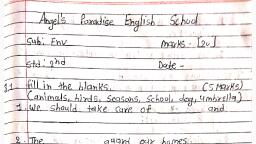 Angel's Paradise English School
Sub: Env Marks - [20]
Std: 2nd Date -
Q.1 fill in the blanks. (5 Marks)
(animals, birds, seasons, school, dog, umbrella)
1. We should take care of and
2. The guard our homes.